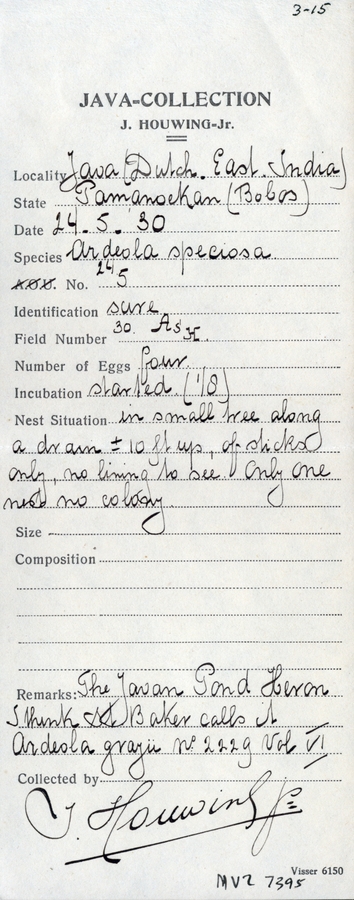 3-15
JAVA-COLLECTION
J. HOUWING-Jr.
Locality Java (Dutch. East. India)
State Pamanoekan (Bobos)
Date 24.5.'30
Species Ardeola speciosa
A.O.U. No. 24/5
Identification sure
Field Number 30. As H.
Number of Eggs four.
Incubation started. (1/8)
Nest Situation in small tree along
a drain ± 10 ft up, of sticks
only, no lining to see. Only one
nest no colony.
Size
Composition
Remarks: The Javan Pond Heron
I think St Baker calls it
Ardeola grayii no 2229 Vol VI
Collected by
J. Houwing Jr
Visser 6150
MVZ 7395